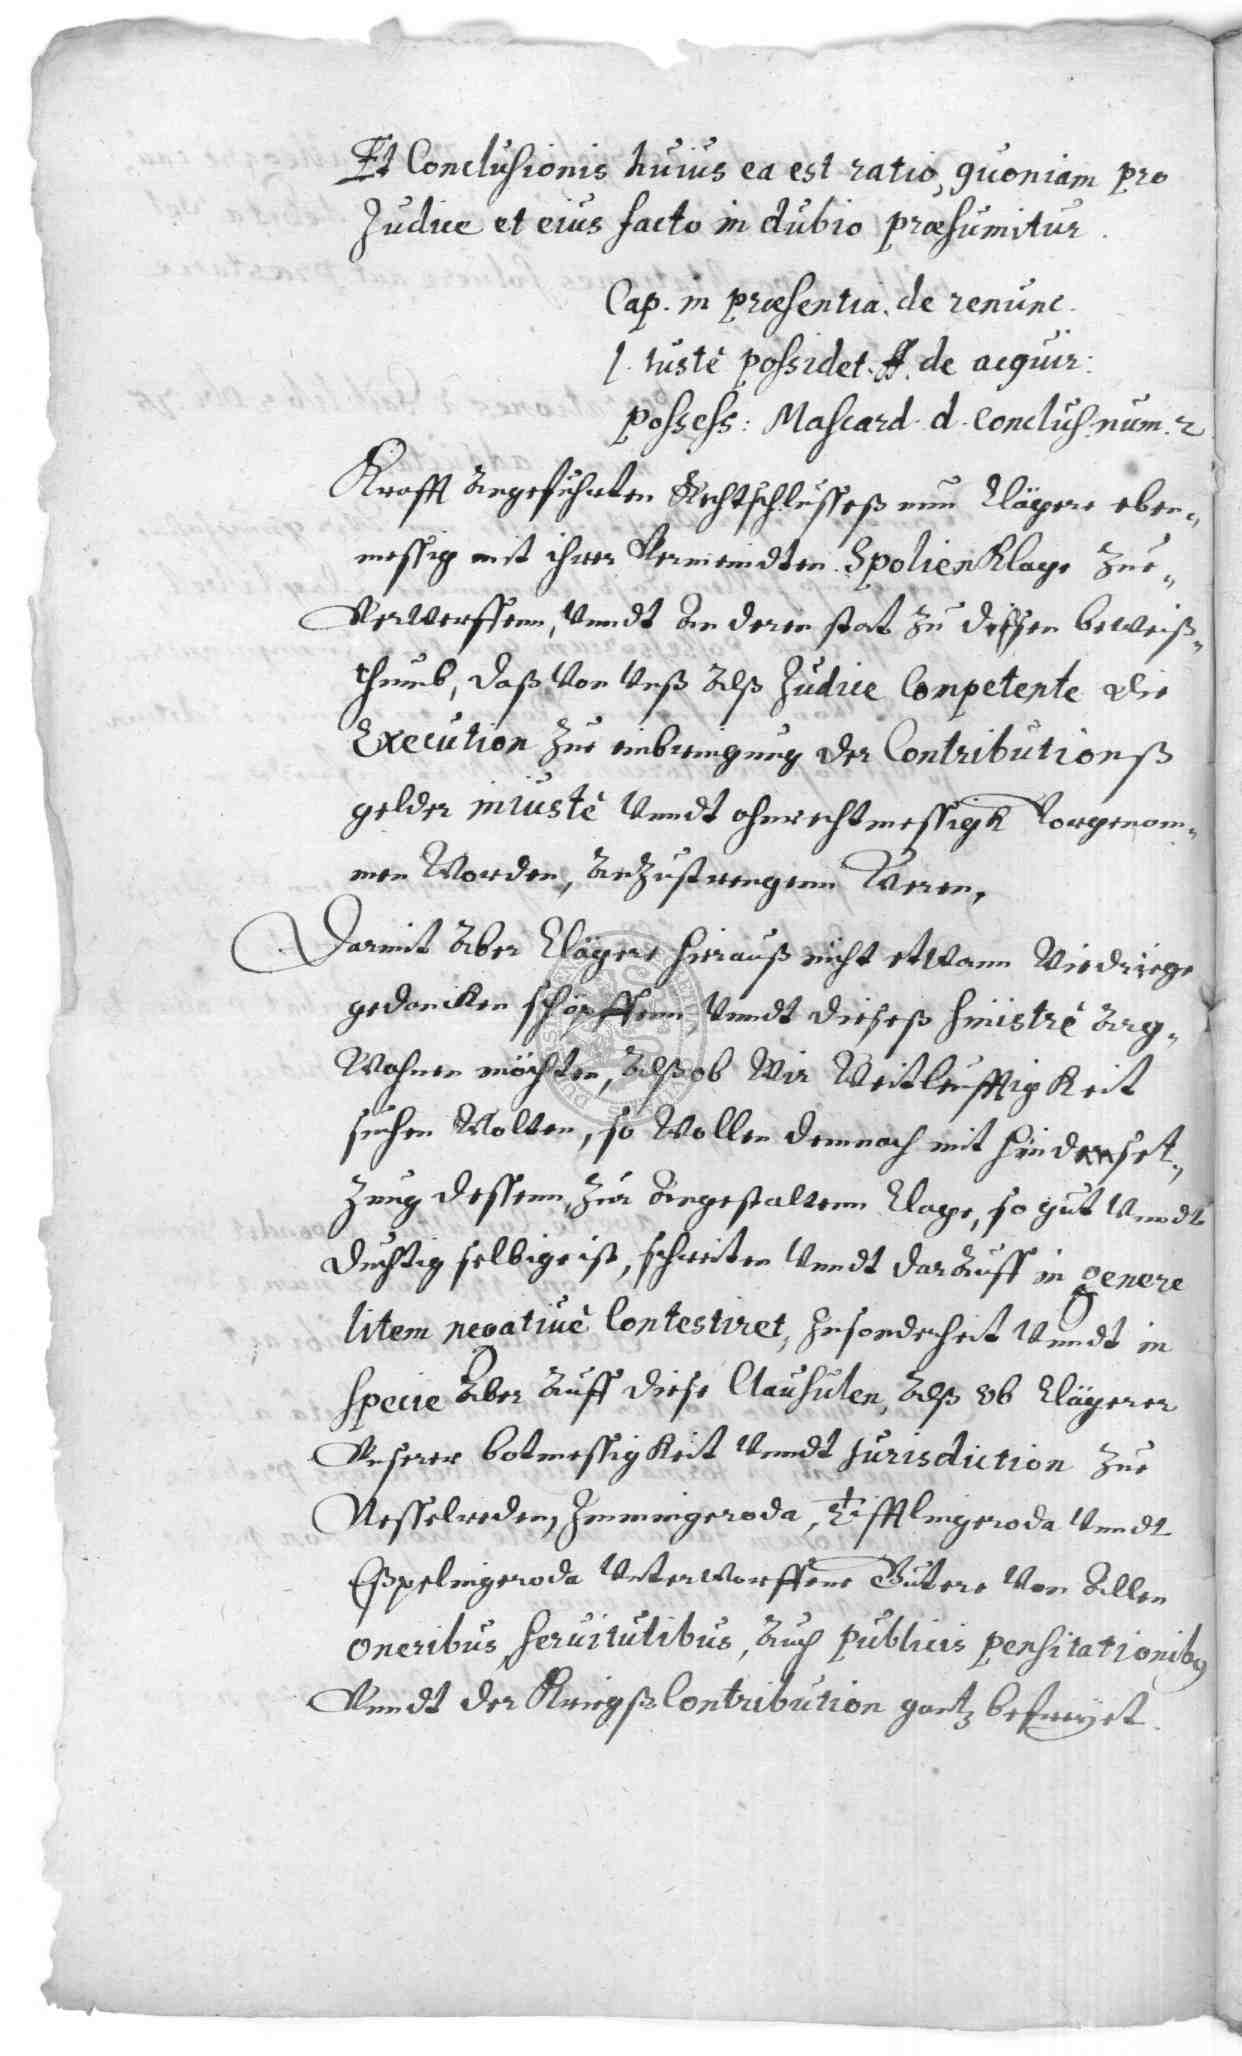 Et Conclusionis huius ea est ratio, quoniam pro
Judice et eius facto in dubio præsumitur.
Cap. in præsentia. de renunc.
l. iustè possidet. ff. de acquir:
possess: Mascard. d. conclus. num. 2
Krafft angeführten Rechtschlusseß nun Klägere eben-
messig mit ihrer Vermeindten Spolien Klage zue-
Verwerffenn, Vnndt an deren stat zu dissen beweiß-
thumb, daß von Vnß alß Judice Competente die
Execution zue einbringung der Contributionß
gelder iniustè Vnndt ohnrechtmessigk Vorgenom-
men Worden, anzustrengenn Weren,
Darmit aber Klägere hierauß nicht etwann Wiedriege
gedancken schöpffenn Vnndt dieseß sinistrè arg-
Wohnen möchten, alß ob Wir Weitleufftigkeit
suchen Wolten, so Wollen demnach mit hindanset-
zung dessenn, zur angestaltenn Klage, so gut Vnndt
duchtig selbige iß, schreiten Vnndt darauff in genere
litem negatiuè Contestiret, Insonderheit Vnndt in
specie aber auff diese Clausulen, alß ob Klägerer
Vnserer botmessigkeit Vnndt Jurisdiction zue
Nesselreden, Immingeroda, Tifftlingeroda Vnndt
Eßpelingeroda Vnterworffene Gütere Von allen
oneribus, seruitutibus, auch publicis pensitationibus
Vnndt der Kriegß Contribution gantz befreyet.